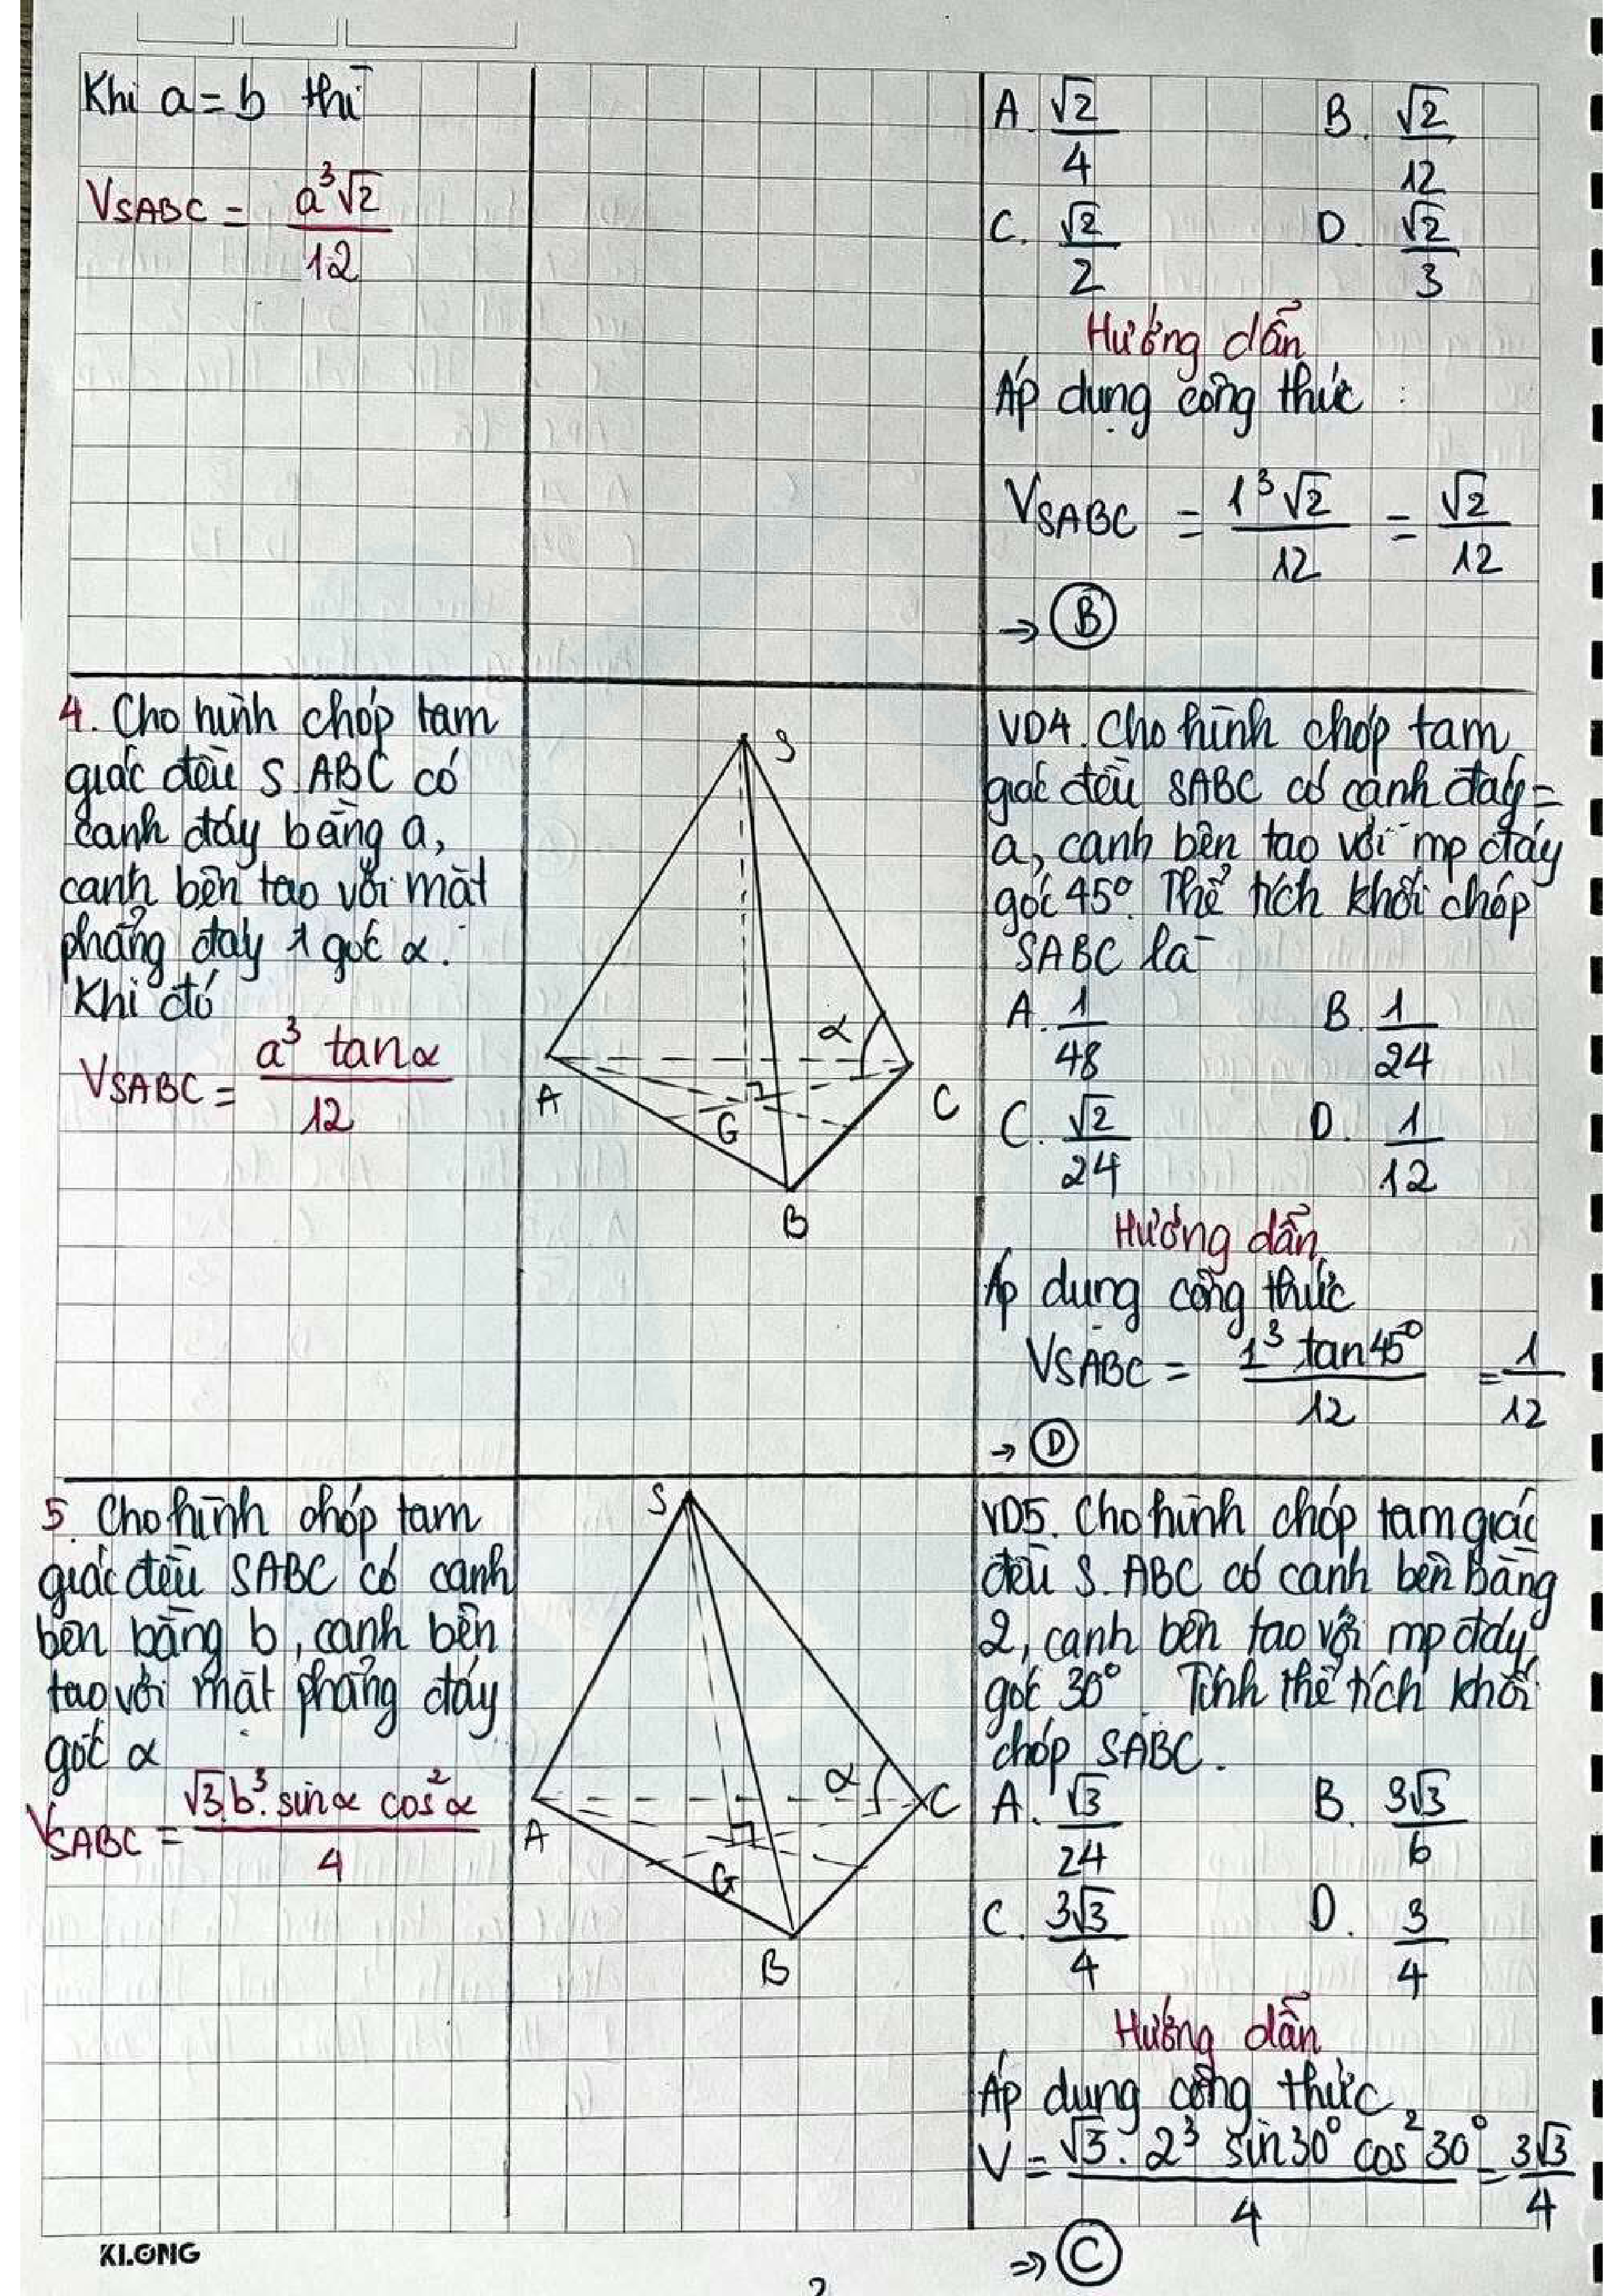 Khi a = b thì
V_SABC = a³√2 / 12
A. √2/4 B. √2/12
C. √2/2 D. √2/3
Hướng dẫn
Áp dụng công thức :
V_SABC = 1³√2 / 12 = √2/12
→ (B)
4. Cho hình chóp tam
giác đều S.ABC có
cạnh đáy bằng a,
cạnh bên tạo với mặt
phẳng đáy 1 góc α.
Khi đó
V_SABC = a³ tanα / 12
S
α
A
G
C
B
VD4. Cho hình chóp tam
giác đều SABC có cạnh đáy =
a, cạnh bên tạo với mp đáy
góc 45°. Thể tích khối chóp
SABC là
A. 1/48 B. 1/24
C. √2/24 D. 1/12
Hướng dẫn
Áp dụng công thức
V_SABC = 1³ tan45° / 12 = 1/12
→ (D)
5. Cho hình chóp tam
giác đều SABC có cạnh
bên bằng b, cạnh bên
tạo với mặt phẳng đáy
góc α
V_SABC = √3.b³.sinα cos²α / 4
S
α
A
G
C
B
VD5. Cho hình chóp tam giác
đều S.ABC có cạnh bên bằng
2, cạnh bên tạo với mp đáy
góc 30°. Tính thể tích khối
chóp SABC.
A. √3/24 B. 3√3/6
C. 3√3/4 D. 3/4
Hướng dẫn
Áp dụng công thức
V = √3.2³ sin30° cos²30° / 4 = 3√3/4
⇒ (C)
KLONG